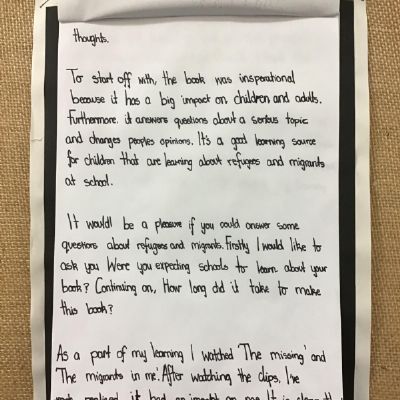 thoughts.
To start off with, the book was insperational
because it has a big impact on children and adults.
Furthermore. it answers questions about a serious topic
and changes peoples opinions. It's a good learning source
for children that are learning about refugees and migrants
at school.
It would be a pleasure if you could answer some
questions about refugees and migrants. Firstly I would like to
ask you Were you expecting schools to learn about your
book? Continuing on, How long did it take to make
this book?
As a part of my learning I watched 'The missing' and
'The migrants in me.' After watching the clips, I've
realised it had an impact on me. It is